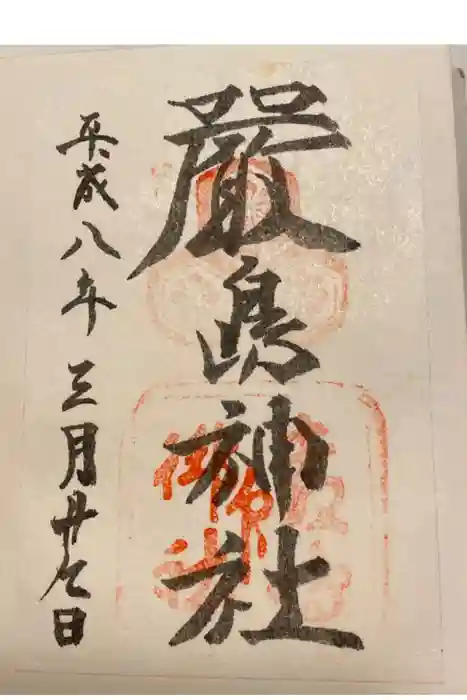 嚴島神社
平成八年三月廿七日